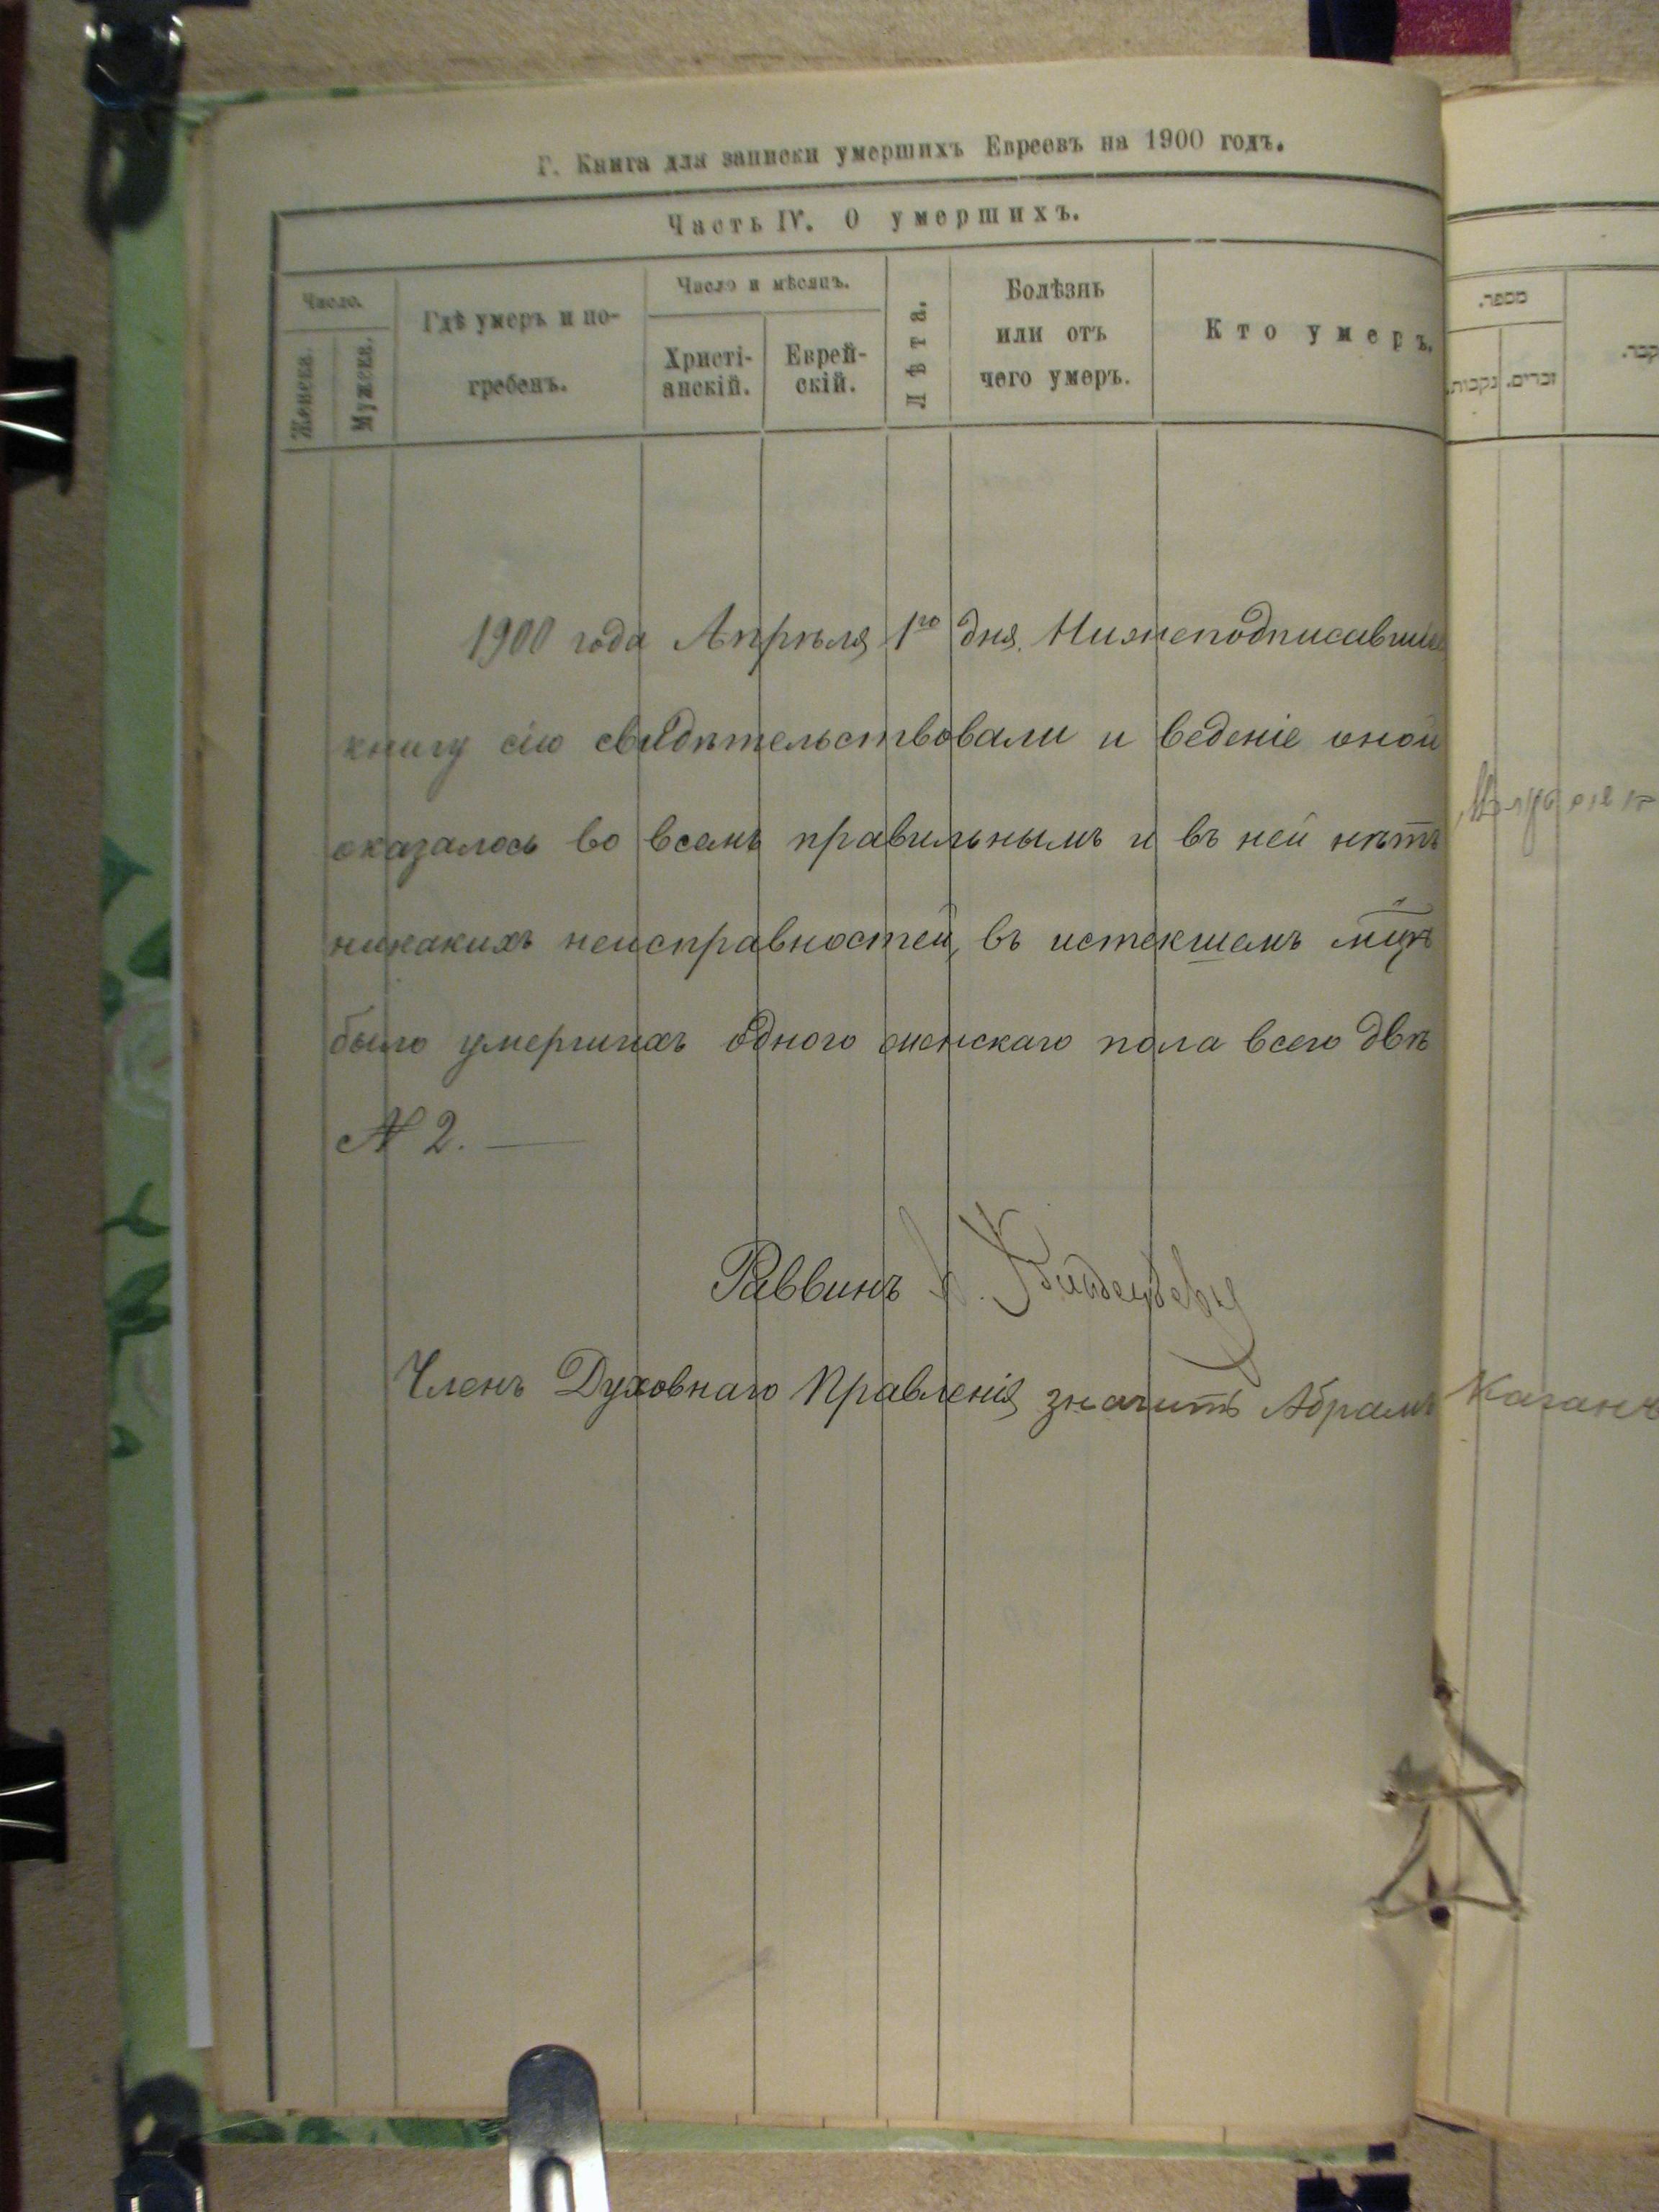 Г. Книга для записки умершихъ Евреевъ на 1900 годъ.
Часть IV. О умершихъ.
Число.
Женска.
Мужска.
Гдѣ умеръ и по-
гребенъ.
Число и мѣсяцъ.
Христі-
анскій.
Еврей-
скій.
Лѣта.
Болѣзнь
или отъ
чего умеръ.
Кто умеръ.
מספר.
נקבות.
זכרים.
1900 года Апрѣля 1го дня Нижеподписавшие
книгу сію свидѣтельствовали и веденіе оной
оказалось во всемъ правильнымъ и въ ней нѣтъ
никакихъ неисправностей, въ истекшемъ мцѣ
было умершихъ одного женскаго пола всего двѣ
№ 2.
Раввинъ
Членъ Духовнаго Правленія значитъ Абрамъ Каганъ